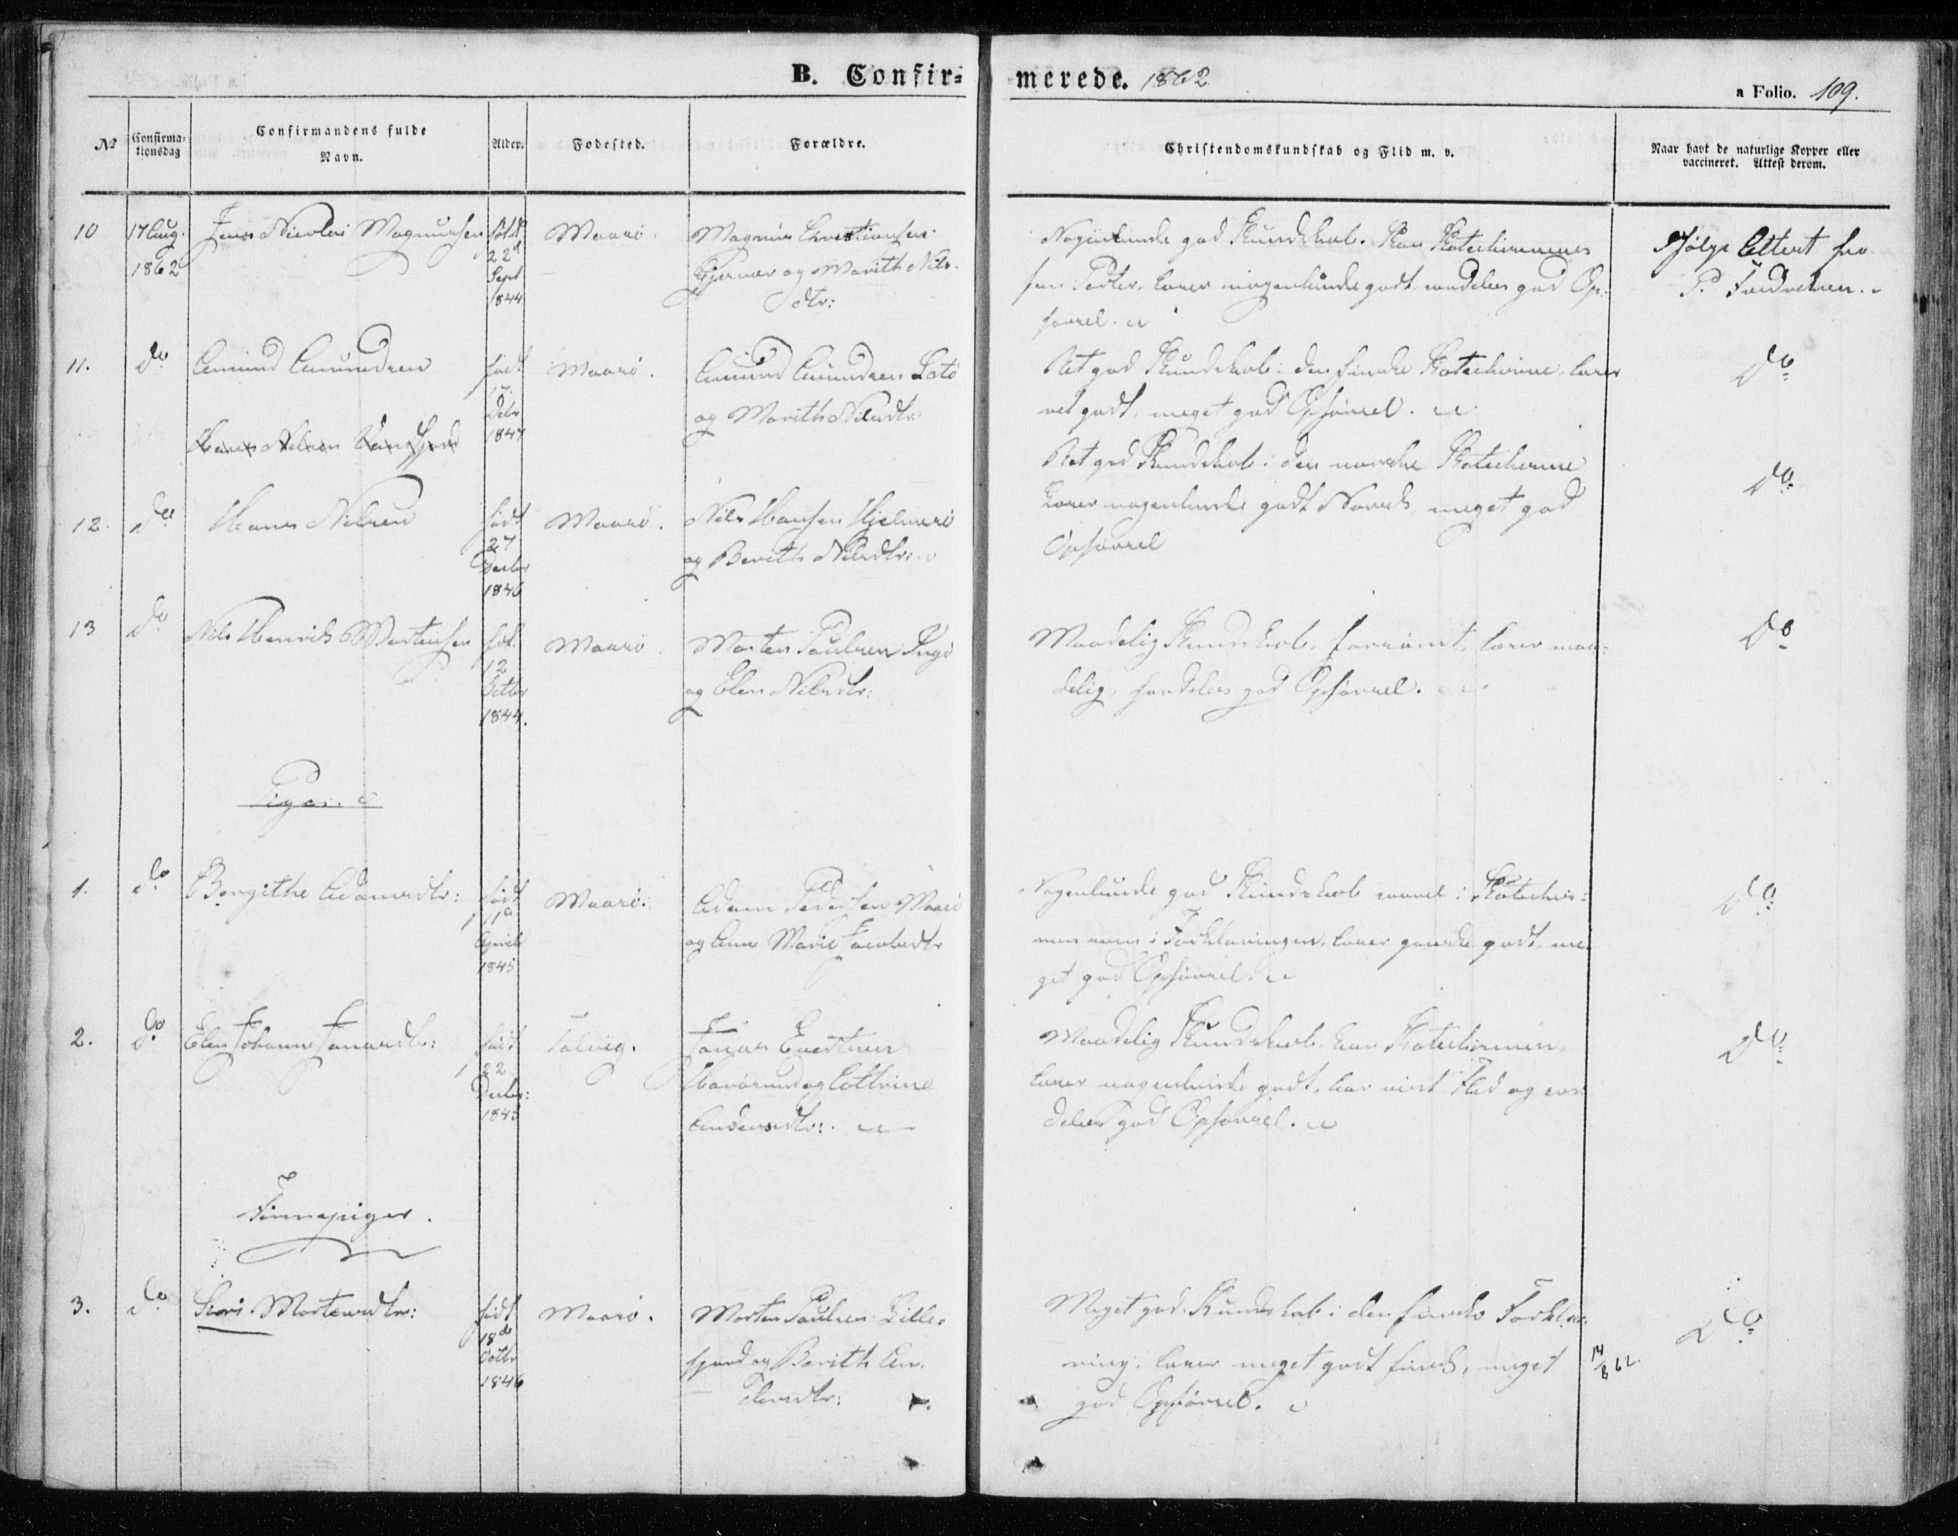 B. Confir= merede. 1862
a Folio. 109.
№
Confirma-
tionsdag
Confirmandens fulde
Navn.
Alder.
Fødested.
Forældre.
Christendomskundskab og Flid m. v.
Naar havt de naturlige Kopper eller
vaccineret. Attest derom.
10
17 Aug.
1862
Jens Nicolai Magnussen
født
22d
Sept
1844
Maasø.
Magnus Christiansen
Gjesvær og Marith Nils-
dtr:
Nogenlunde god Kundskab. Kan Katechismus
læser nogenlunde godt, god Op-
førsel.
Ifølge Attest fra
P.
11.
do
Amund Amundsen
født
17
Debr
1847
Maasø.
Amund Amundsen
og Marith Nilsdtr:
Ret god Kundskab i den finske Katechisme, læser
ret godt, meget god Opførsel.
Do
Hans Nilsen
12.
do
Hans Nilsen
født
27
Decbr
1846
Maasø.
Nils Hansen Hjelmesø
og Berith Nilsdtr:
Ret god Kundskab i den norske Katechisme
læser nogenlunde godt Norsk, meget god
Opførsel
Do
13
do
Nils Henrik Mortensen
født
12
Octbr
1844.
Maasø.
Morten Paulsen Ingø
og Elen Nilsdtr:
Maadelig Kundskab, forsømt, læser maa-
delig, god Opførsel.
Do
Piger.
1.
do
Bergithe Adamsdtr:
født
11te
April
1845
Maasø.
Adam Pedersen Maasø
og Anne Marie Jacobsdtr
Nogenlunde god Kundskab saavel i Katechis-
men som i Forklaringen, læser ganske godt, me-
get god Opførsel.
Do
2.
do
Elen Johanne Jonasdtr:
født
22
Decbr:
1845
Talvig.
Jonas Evertsen
Havøsund og Cathrine
Andersdtr:
Maadelig Kundskab, kan Katechismen,
læser nogenlunde godt, har viist Flid og sær-
deles god Opførsel.
Do
Finnepiger.
3.
do
Siri Mortensdtr:
født
18de
Octbr
1846
Maasø.
Morten Paulsen Lille-
fjord og Berith An-
dersdtr:
Meget god Kundskab i den finske Forkla-
ring, læser meget godt finsk, meget
god Opførsel.
14/8 62.
Do